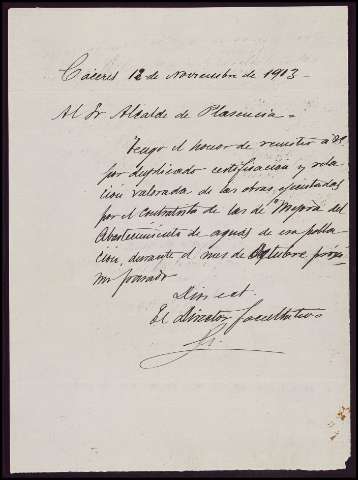 Cáceres 12 de Noviembre de 1913 -
Al Sr Alcalde de Plasencia =
Tengo el honor de remitir a VS
por duplicado certificación y rela-
ción valorada de las obras ejecutadas
por el contratista de las de Mejora del
Abastecimiento de aguas de esa pobla-
ción, durante el mes de Octubre próxi-
mo pasado
Dios, et.
El Director facultativo